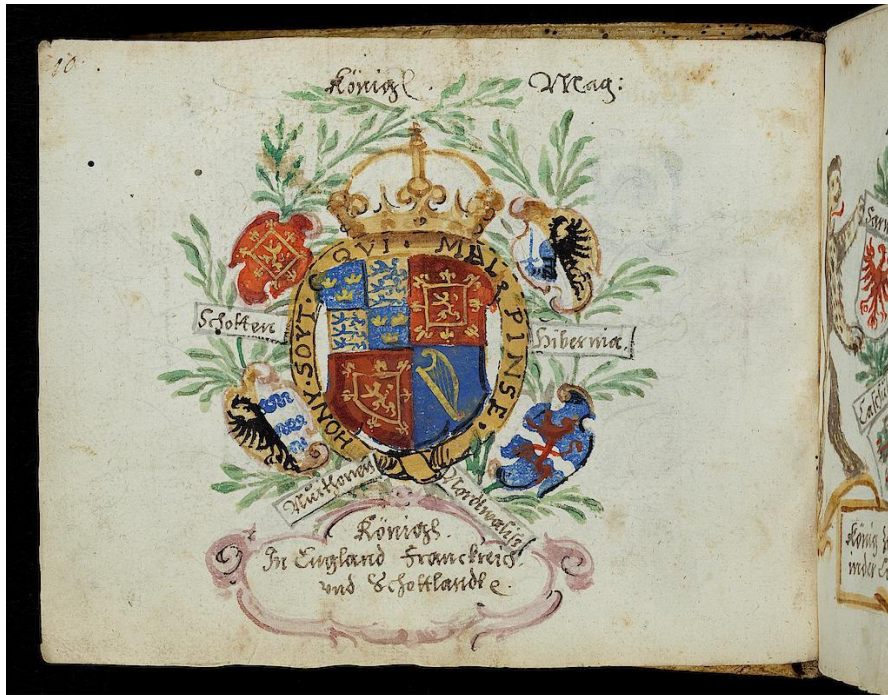 10.
Königl. Mag:
HONY · SOYT · QVI · MAL · PINSE ·
Schotten
Hibernia
Nordtwaliss
Königl.
In England Franckreich
und Schottlandt
König
in der